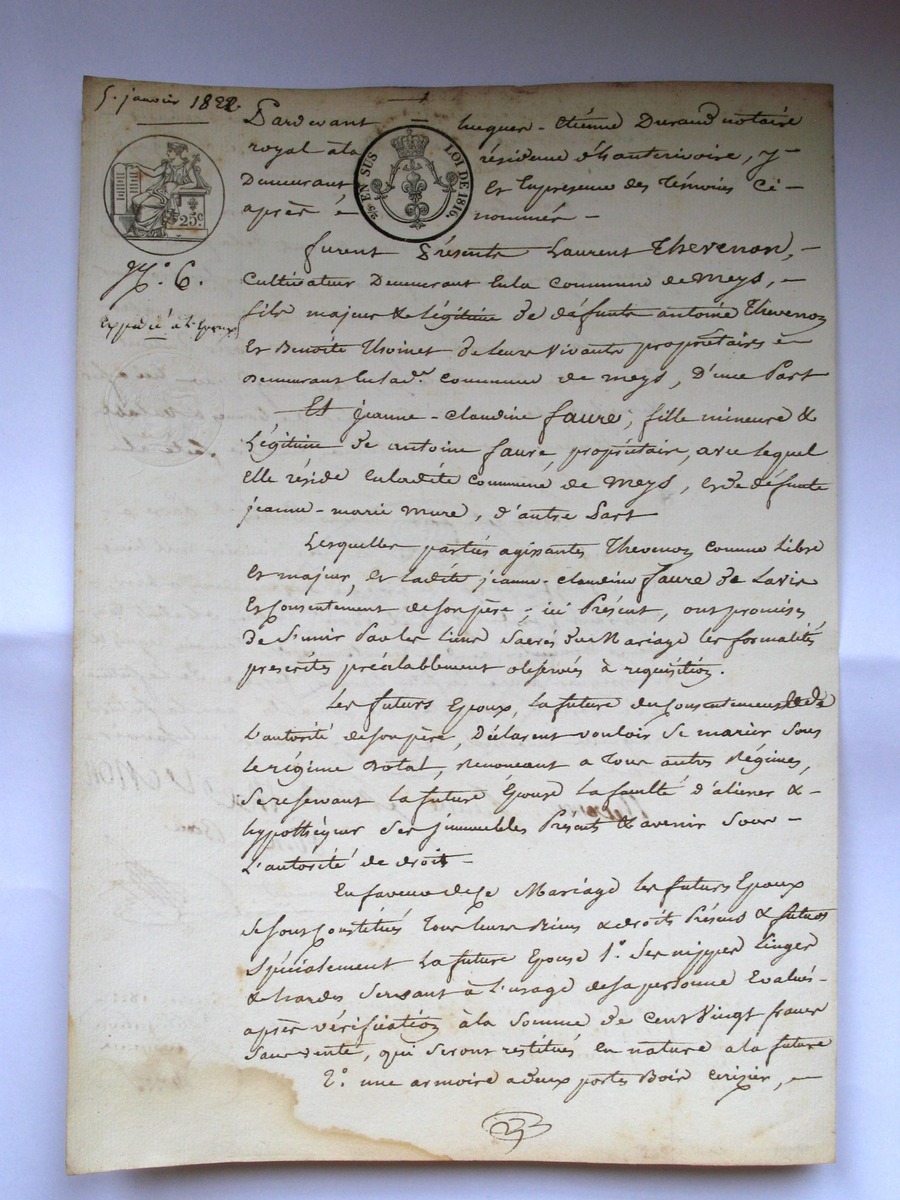 5. janvier 1822.
Pardevant hugues-étienne Durand notaire
royal à la résidence d'hauterivoire, y
Demeurant Et En présence des Témoins Ci-
après é nommés-
EN SUS LOI DE 1816.
25c.
N.o 6.
Expédié
furent Présents Laurent Thevenon,
Cultivateur Demeurant En la Commune de Meys,
fils majeur & légitime de défunts antoine Thevenon
Et Benoite Thoinet de leurs Vivants propriétaires &
Demeurants En lad.e Commune de Meys, D'une Part
Et jeanne-claudine faure, fille mineure &
Légitime de antoine faure, propriétaire, avec lequel
Elle réside En ladite Commune de Meys, et de défunte
jeanne-marie Mure, d'autre Part
Lesquelles parties agissantes, Thevenon Comme Libre
Et majeur, Et ladite jeanne-claudine faure de L'avis
Et Consentement de son père, ici Présent, ont promises
de S'unir Par les Liens Sacrés du Mariage les formalités
prescrites préalablement observées à réquisition.
Les futurs Epoux, La future du Consentement & de
L'autorité de son père, Déclarent vouloir Se marier Sous
le régime Dotal, Renonceant a Tous autres Régimes,
Se reservant La future Epouse La faculté d'aliener &
hypothèquer Ses jmmeubles Présents & avenir Sous
L'autorité de droit-
En faveur de Ce Mariage les futurs Epoux
Se Sont Constitués Tous leurs Biens & droits Présens & futurs
Spécialement La future Epouse 1.o Ses nippes Linges
& hardes Servant à L'usage de sa personne Evalués-
après vérification à la Somme de Cent Vingt francs
Sans vente, qui Seront restitués En nature a la future
2.o une armoire a deux portes Bois Cerizier,